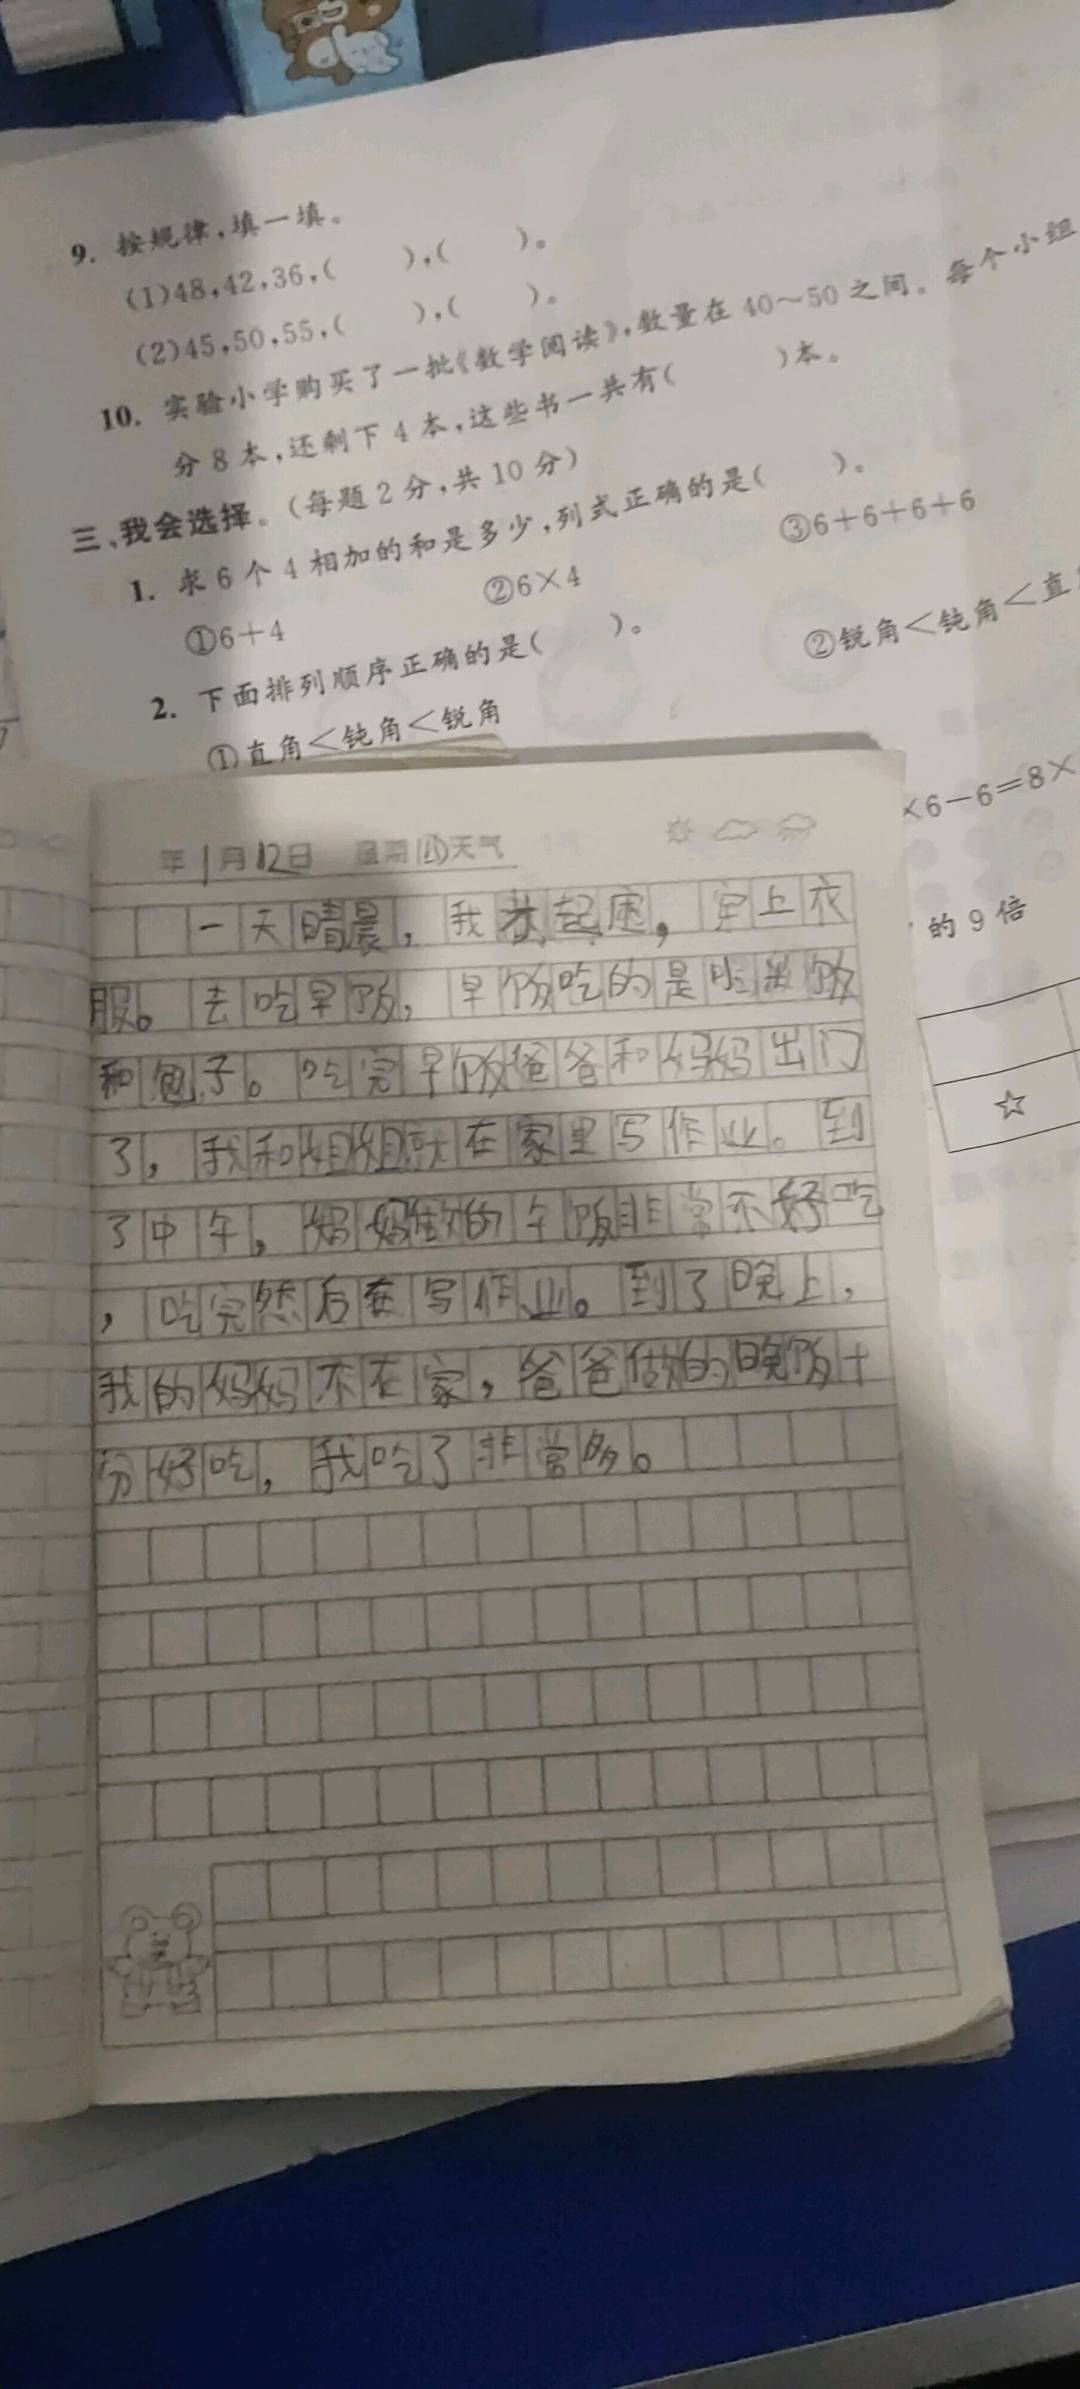 9. 按规律,填一填。
(1)48,42,36,( ),( )。
(2)45,50,55,( ),( )。
10. 实验小学购买了一批《数学阅读》,数量在 40~50 之间。每个小组
分 8 本,还剩下 4 本,这些书一共有( )本。
三、我会选择。(每题 2 分,共 10 分)
1. 求 6 个 4 相加的和是多少,列式正确的是( )。
①6+4 ②6×4 ③6+6+6+6
2. 下面排列顺序正确的是( )。
①直角<钝角<锐角 ②锐角<钝角<直
×6-6=8×
的 9 倍
☆
年1月12日 星期四天气
一天晴晨,我起床,穿上衣
服。去吃早饭,早饭吃的是饭
和包子。吃完早饭爸爸和妈妈出门
了,我和姐姐就在家里写作业。到
了中午,妈妈做的午饭非常不好吃
,吃完然后在写作业。到了晚上,
我的妈妈不在家,爸爸做的晚饭十
分好吃,我吃了非常多。